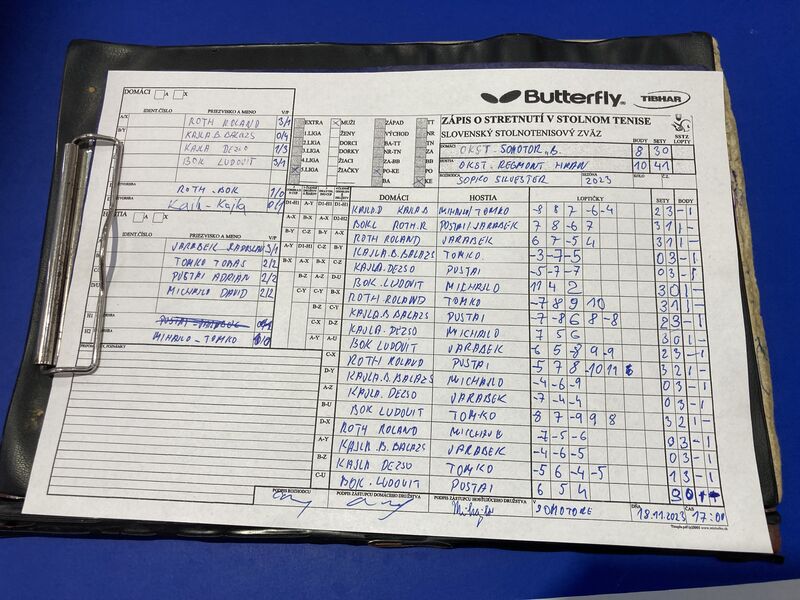 DOMÁCI A X
Butterfly TIBHAR
IDENT.ČÍSLO PRIEZVISKO A MENO V/P
ZÁPIS O STRETNUTÍ V STOLNOM TENISE
SLOVENSKÝ STOLNOTENISOVÝ ZVÄZ
SSTZ
BODY SETY LOPTY
A/X ROTH ROLAND 3/1
B/Y KAJLA B. BALAZS 0/4
KAJLA DEZSO 1/3
BOK LUDOVIT 3/1
ROTH - BOK 1/0
Kajla - Kajla 0/1
EXTRA MUŽI ZÁPAD TT
1.LIGA ŽENY VÝCHOD NR
2.LIGA DORCI BA-TT TN
3.LIGA DORKY NR-TN ZA
4.LIGA ŽIACI ZA-BB BB
5.LIGA ŽIAČKY PO-KE PO
BA KE
DOMÁCI OKST. SOMOTOR, B. 8 30
HOSTIA OKST. REGMONT HMAN 10 41
ROZHODCA SOPKO SILVESTER SEZÓNA 2023 KOLO Č.
HOSTIA A X
IDENT.ČÍSLO PRIEZVISKO A MENO V/P
VARABEK RADOSLAV 3/1
TOMKO TOMAS 2/2
PUSTAI ADRIAN 2/2
MICHALO DAVID 2/2
MIHAJLO - TOMKO
PRIPOMIENKY, POZNÁMKY
DOMÁCI HOSTIA LOPTIČKY SETY BODY
KAJLA.D KAJLA B MIHAJLO/TOMKO -8 8 7 -6 -4 2 3 - 1
BOK L ROTH.R PUSTAI/VARABEK 7 8 -6 7 3 1 1 -
ROTH ROLAND VARABEK 6 7 -5 4 3 1 1 -
KAJLA.B. BALAZS TOMKO -3 -7 -5 0 3 - 1
KAJLA. DEZSO PUSTAI -5 -7 -7 0 3 - 1
BOK. LUDOVIT MICHAILO 11 4 2 3 0 1 -
ROTH ROLAND TOMKO -7 8 9 10 3 1 1 -
KAJLA.B. BALAZS PUSTAI -7 -8 6 8 -8 2 3 - 1
KAJLA. DEZSO MICHAILO 7 5 6 3 0 1 -
BOK LUDOVIT VARABEK -6 5 8 -9 -9 2 3 - 1
ROTH ROLAND PUSTAI -5 7 8 -10 11 3 2 1 -
KAJLA.B. BALAZS MICHAILO -4 -6 -9 0 3 - 1
KAJLA. DEZSO VARABEK -7 -4 -4 0 3 - 1
BOK LUDOVIT TOMKO 8 7 -9 9 8 3 2 1 -
ROTH ROLAND MICHAILO -7 -5 -6 0 3 - 1
KAJLA. B. BALAZS VARABEK -4 -6 -5 0 3 - 1
KAJLA DEZSO TOMKO -5 6 -4 -5 1 3 - 1
BOK. LUDOVIT PUSTAI 6 5 4 3 0 1
PODPIS ROZHODCU PODPIS ZÁSTUPCU DOMÁCEHO DRUŽSTVA PODPIS ZÁSTUPCU HOSŤUJÚCEHO DRUŽSTVA V SOMOTORE DŇA 18.11.2023 ČAS 17:00